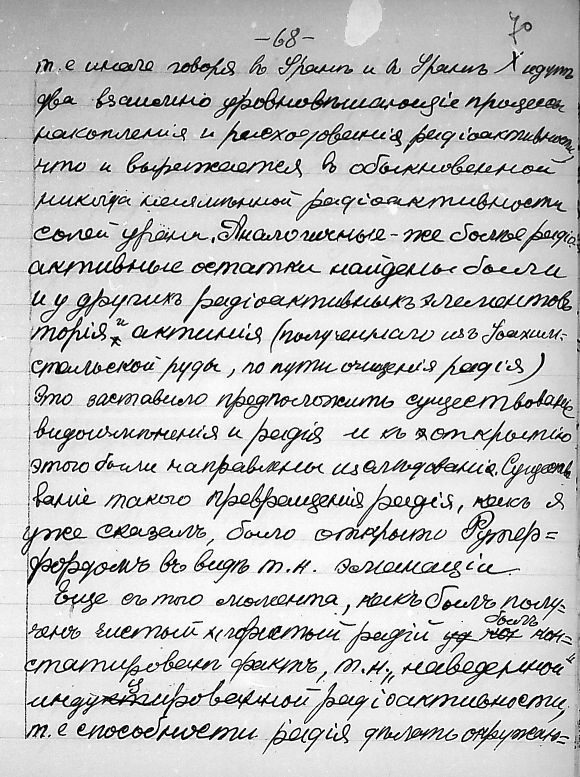 -68-
70
т.е иначе говоря въ Уранѣ и въ Уранѣ X идутъ
два взаимно уровновѣшающіе процесса
накопленія и расходованія радіоактивности,
что и выражается въ обыкновенной
никогда неизмѣнной радіоактивности
солей урана. Аналогичные-же более радіо-
активные остатки найдены были
и у другихъ радіоактивныхъ элементовъ
торія и актинія (полученнаго изъ Іоахим-
стальской руды, по пути очищенія радія)
Это заставило предположить существованіе
видоизмѣненія и радія и къ открытію
этого были направлены изслѣдованія. Существо-
ваніе такого превращенія радія, какъ я
уже сказалъ, было открыто Рутер=
фордомъ въ видѣ т.н. эманаціи.
Еще съ того момента, какъ былъ полу=
ченъ чистый хлористый радій былъ кон=
статированъ фактъ, т.н. „наведенной"
индуцированной радіоактивности,
т.е способности радія дѣлать окружаю=